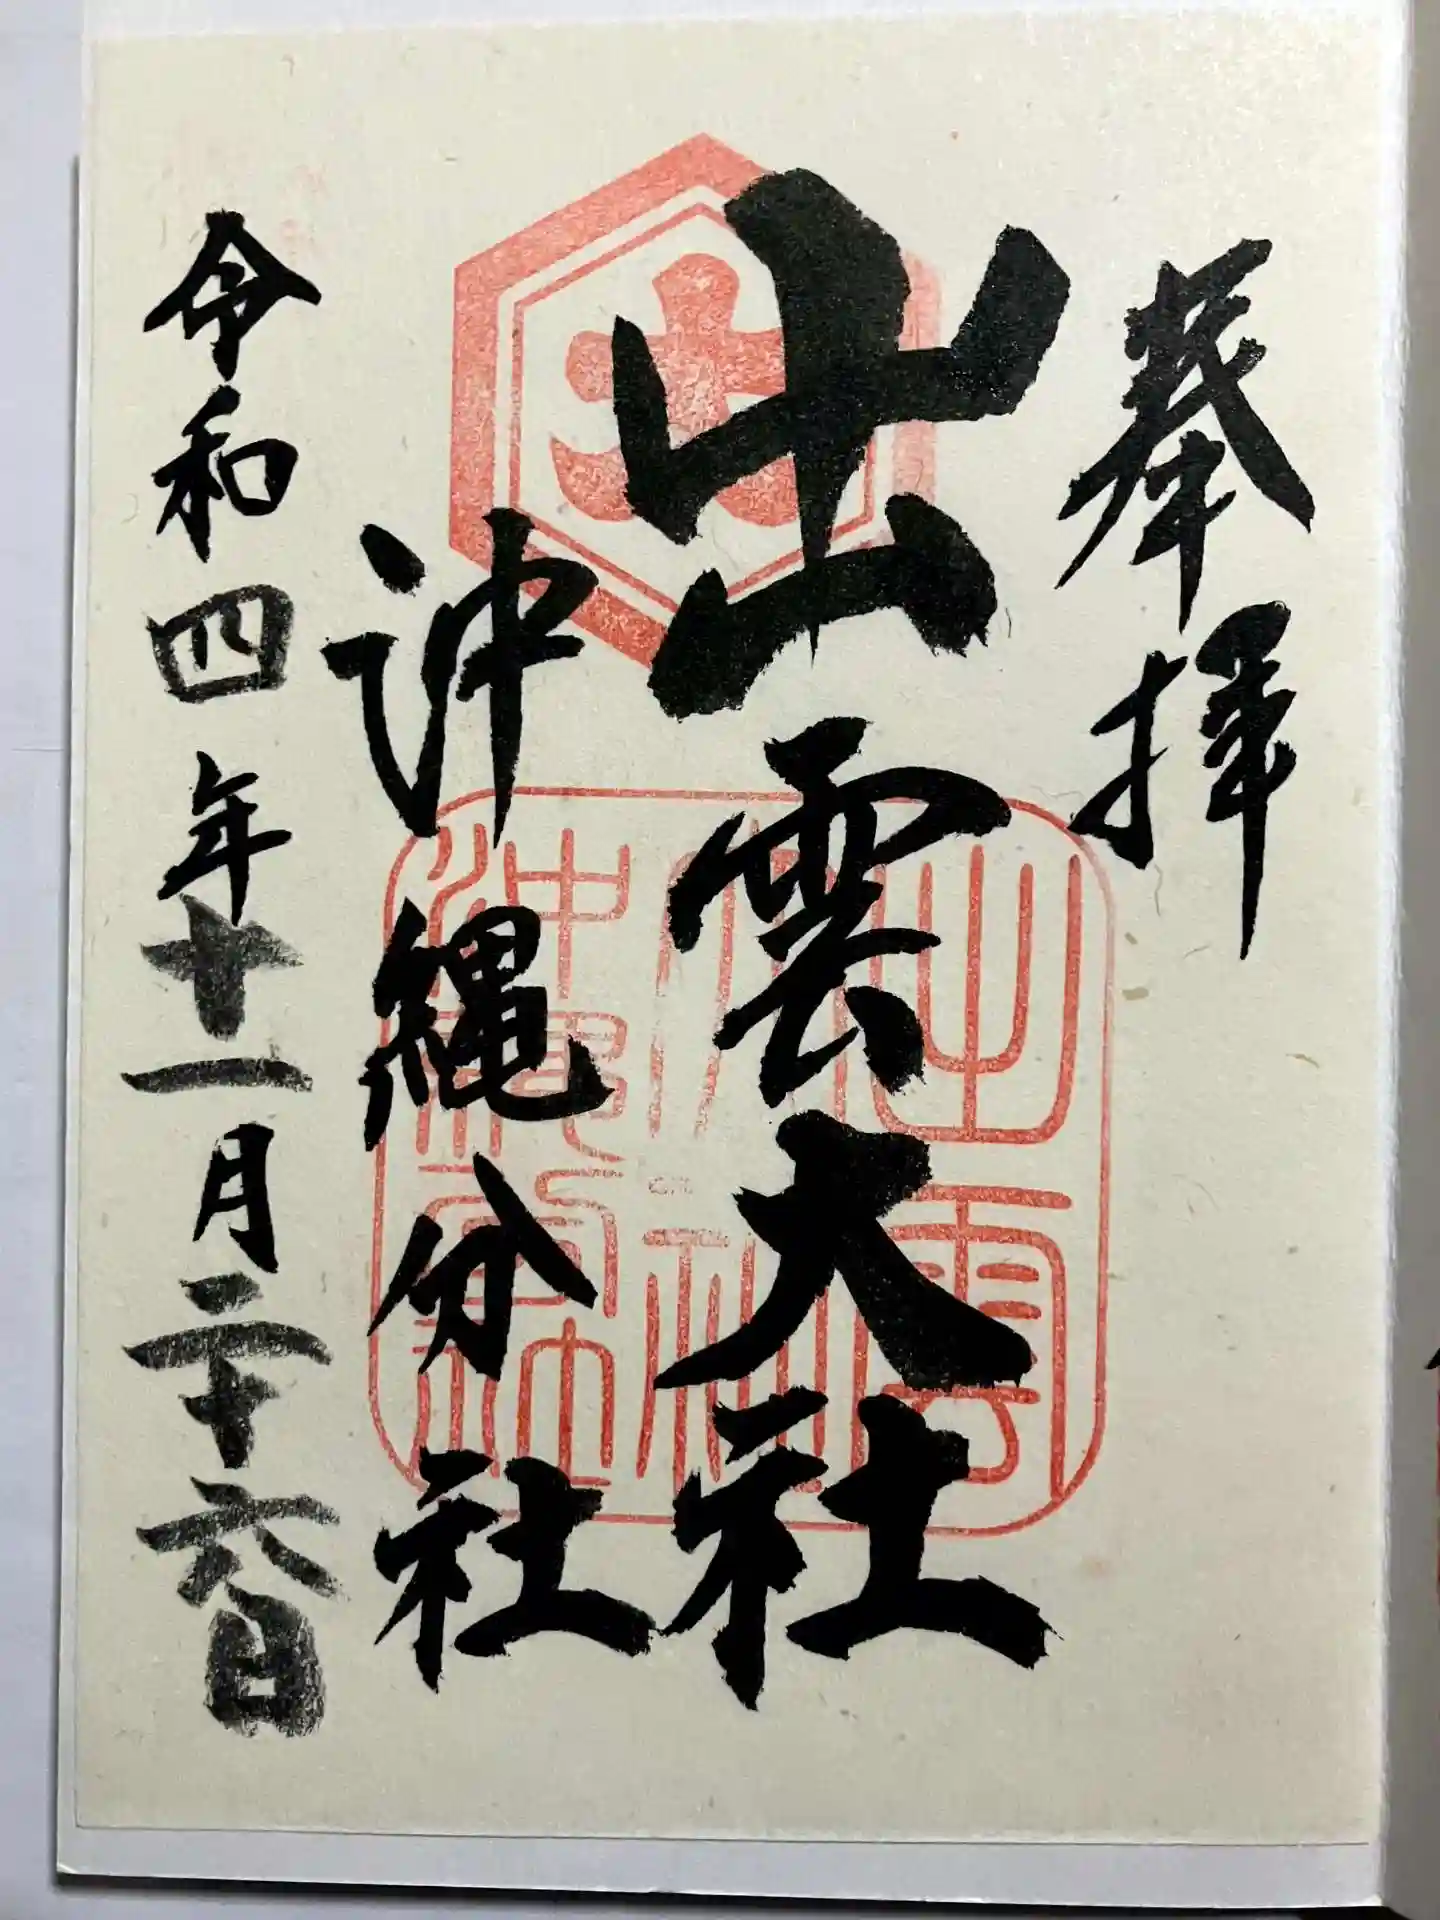 奉拝
出雲大社
沖縄分社
令和四年十一月二十六日
出雲
大社
沖縄
分社